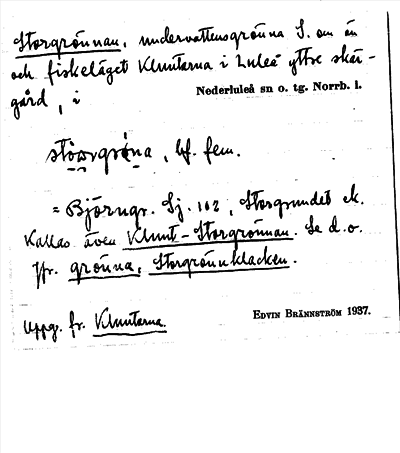 Storgrönnan, undervattensgrönna S. om ön
och fiskeläget Kluntarna i Luleå yttre skär-
gård, i
Nederluleå sn o. tg. Norrb. l.
stòrgrö́na, bf. fem.
= Björngr. Sj. 102, Storgrundet ek.
Kallas även Klunt-Storgrönnan. Se d.o.
Jfr. grönna, Storgrönnklacken.
Uppg. fr. Kluntarna.
EDVIN BRÄNNSTRÖM 1937.